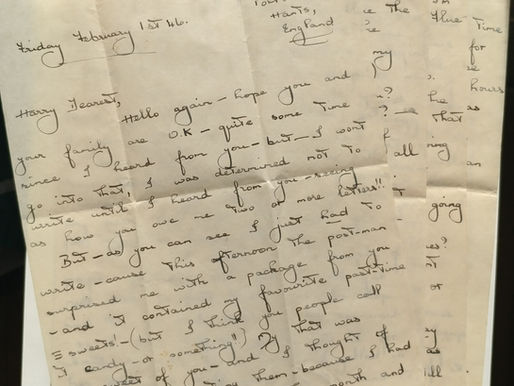 Hants,
England
Friday February 1st 46.
Harry Dearest,
Hello again – hope you and
your family are O.K – quite some time
since I heard from you – but – I wont
go into that; I was determined not to
write until I heard from you – seeing
as how you owe me two or more letters!!
But – as you can see I just had to
write – cause this afternoon the postman
surprised me with a package from you
– and it contained my favourite past-time
sweets – (but I think you people call
candy – or something!!)
that was
sweet of you – and I thought of
them – because I had
month and
the
Flue Time
my
for
hours
he
as
that
all
an
going